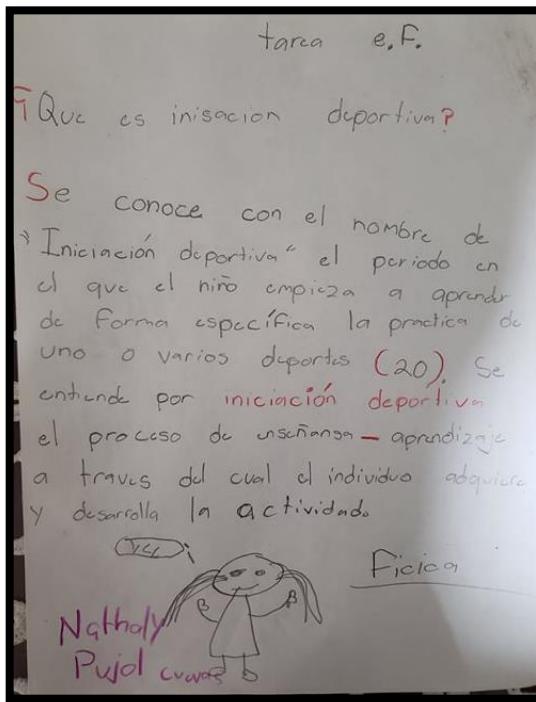 tarea e.F.
¿Que es inisacion deportiva?
Se conoce con el nombre de
"Iniciación deportiva" el periodo en
el que el niño empieza a aprender
de forma específica la practica de
uno o varios deportes (20). Se
entiende por iniciación deportiva
el proceso de enseñansa - aprendizaje
a traves del cual el individuo adquiere
y desarrolla la actividad.
Ficica
Nathaly
Pujol cuevas